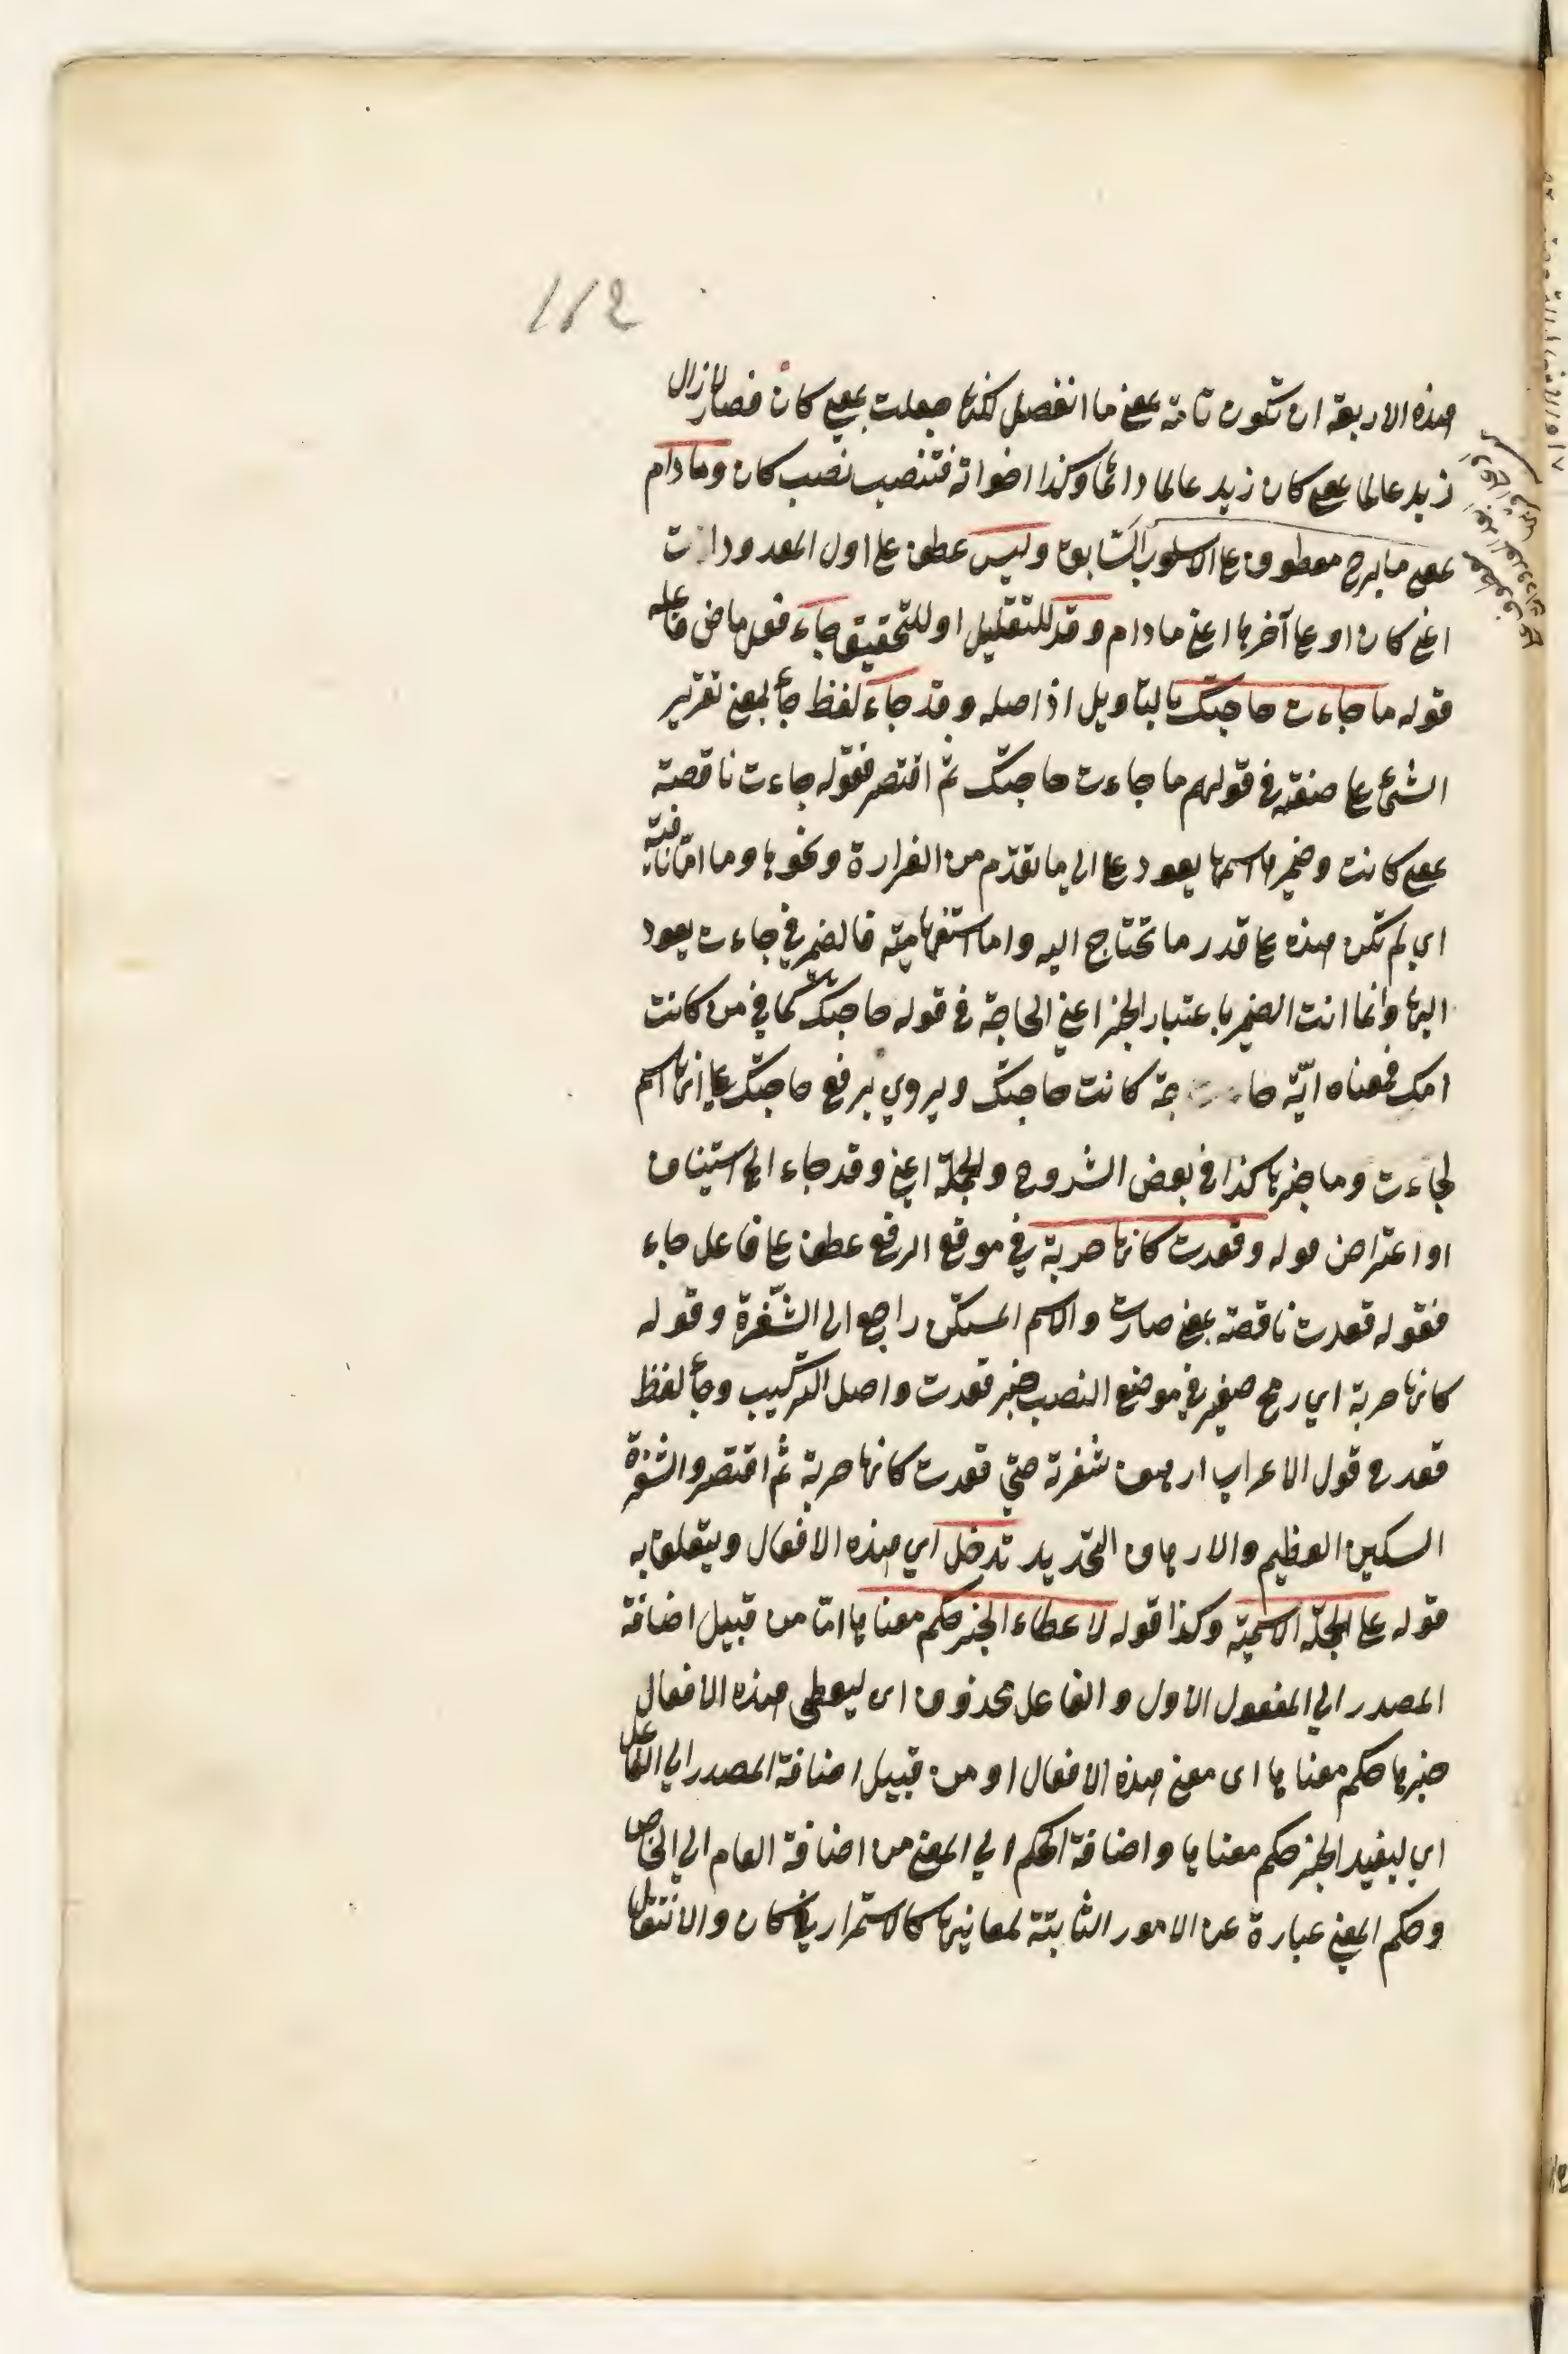 112
هذه الاربعة ان تكون تامة بمعنى ما انفصل لكنها جعلت بمعنى كان فصار لازال
زيد عالما بمعنى كان زيد عالما دائما وكذا اخواته فتنصب نصب كان وما دام
بمعنى ما برح معطوف على الاسلوب السابق وليس عطف على اول المعدودات
اعني كان او على آخرها اعني مادام وقد للتقليل او للتحقيق جاء فعل ماض فاعله
قوله ما جاءت حاجتك بالتاويل اذ اصله وقد جاء لفظ جاء بمعنى تقرير
الشئ على صفة في قولهم ما جاءت حاجتك ثم اقتصر فقوله جاءت ناقصة
بمعنى كانت وضميرها اسمها يعود الى ما تقدم من الغرارة ونحوها وما اما نافية
اي لم تكن هذه على قدر ما تحتاج اليه واما استفهامية فالضمير في جاءت يعود
اليها وانما انت الضمير باعتبار الخبر اعني الحاجة في قوله حاجتك كما في من كانت
امك فمعناه اية حاجة كانت حاجتك ويروي برفع حاجتك على انها اسم
لجاءت وما خبرها كذا في بعض الشروح والجملة اعني وقد جاء الى استيناف
او اعتراض قوله وقعدت كانها حربة في موقع الرفع عطف على فاعل جاء
فقوله قعدت ناقصة بمعنى صارت والاسم المستكن راجع الى الشفرة وقوله
كانها حربة اي رمح صغير في موضع النصب خبر قعدت واصل التركيب وجاء لفظ
قعد في قول الاعرابي ارهف شفرته حتي قعدت كانها حربة ثم اقتصر والشفرة
السكين العظيم والارهاف التحديد تدخل اي هذه الافعال ويتعلق به
قوله على الجملة الاسمية وكذا قوله لاعطاء الخبر حكم معناها اما من قبيل اضافة
المصدر الي المفعول الاول والفاعل محذوف اى ليعطى هذه الافعال
خبرها حكم معناها اى معنى هذه الافعال او من قبيل اضافة المصدر الي الفاعل
اي ليفيد الخبر حكم معناها واضافة الحكم الي المعنى من اضافة العام الي الخاص
وحكم المعنى عبارة عن الامور الثابتة لمعانيها كالاستمرار في كان والانتقال